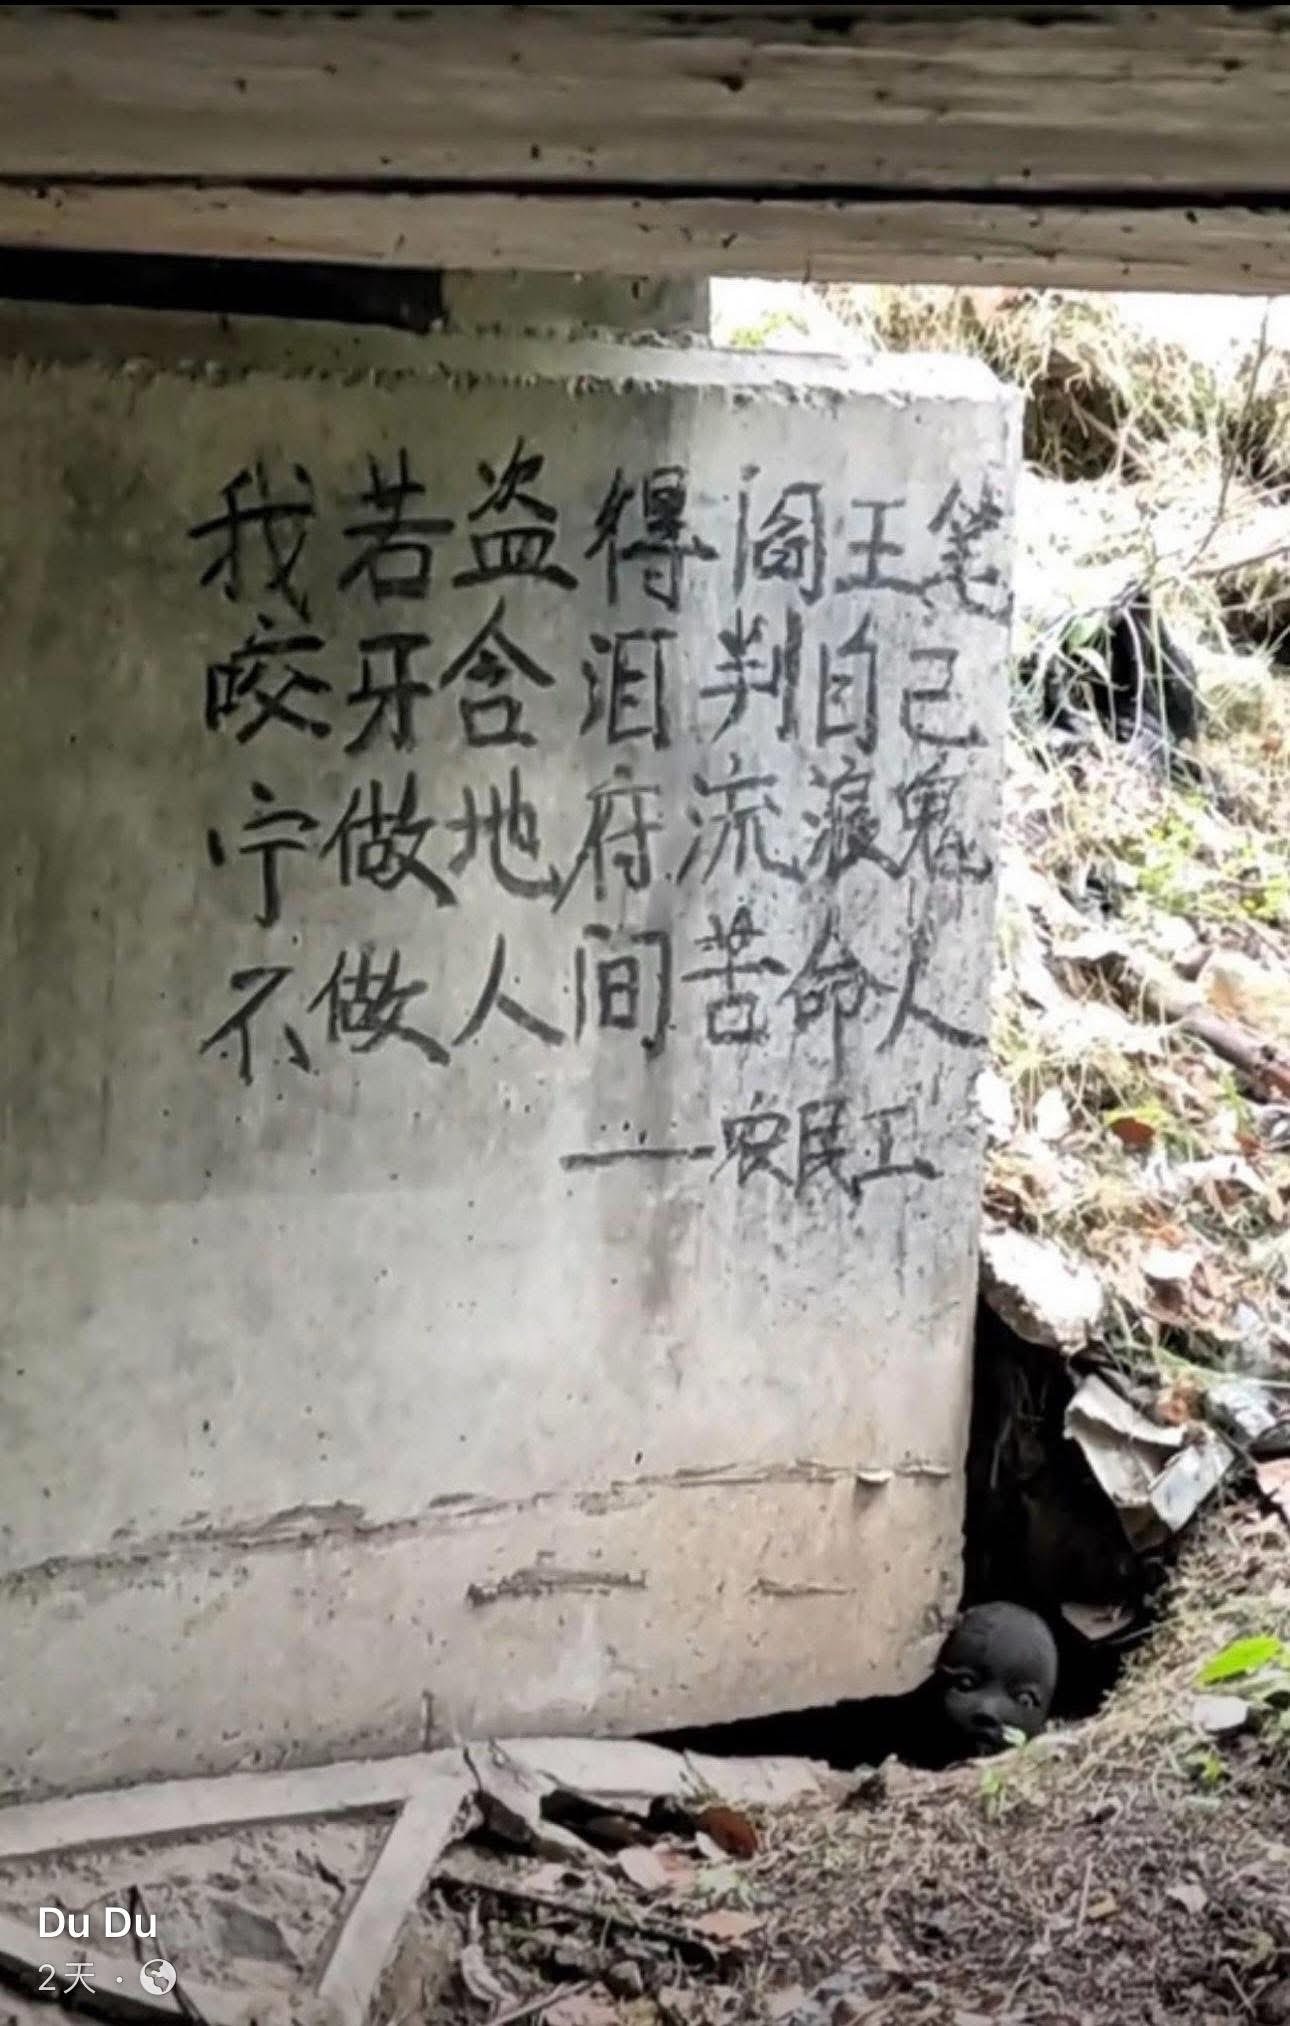 我若盗得阎王笔
咬牙含泪判自己
宁做地府流浪鬼
不做人间苦命人
——农民工
Du Du
2天 ·